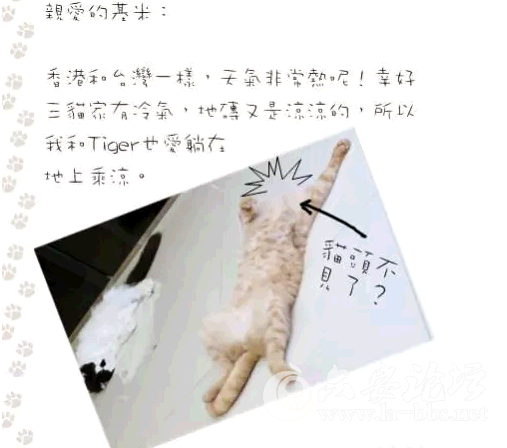 親愛的基米：
香港和台灣一樣，天氣非常熱呢！幸好
三貓家有冷氣，地磚又是涼涼的，所以
我和Tiger也愛躺在
地上乘涼。
貓頭不
見了？